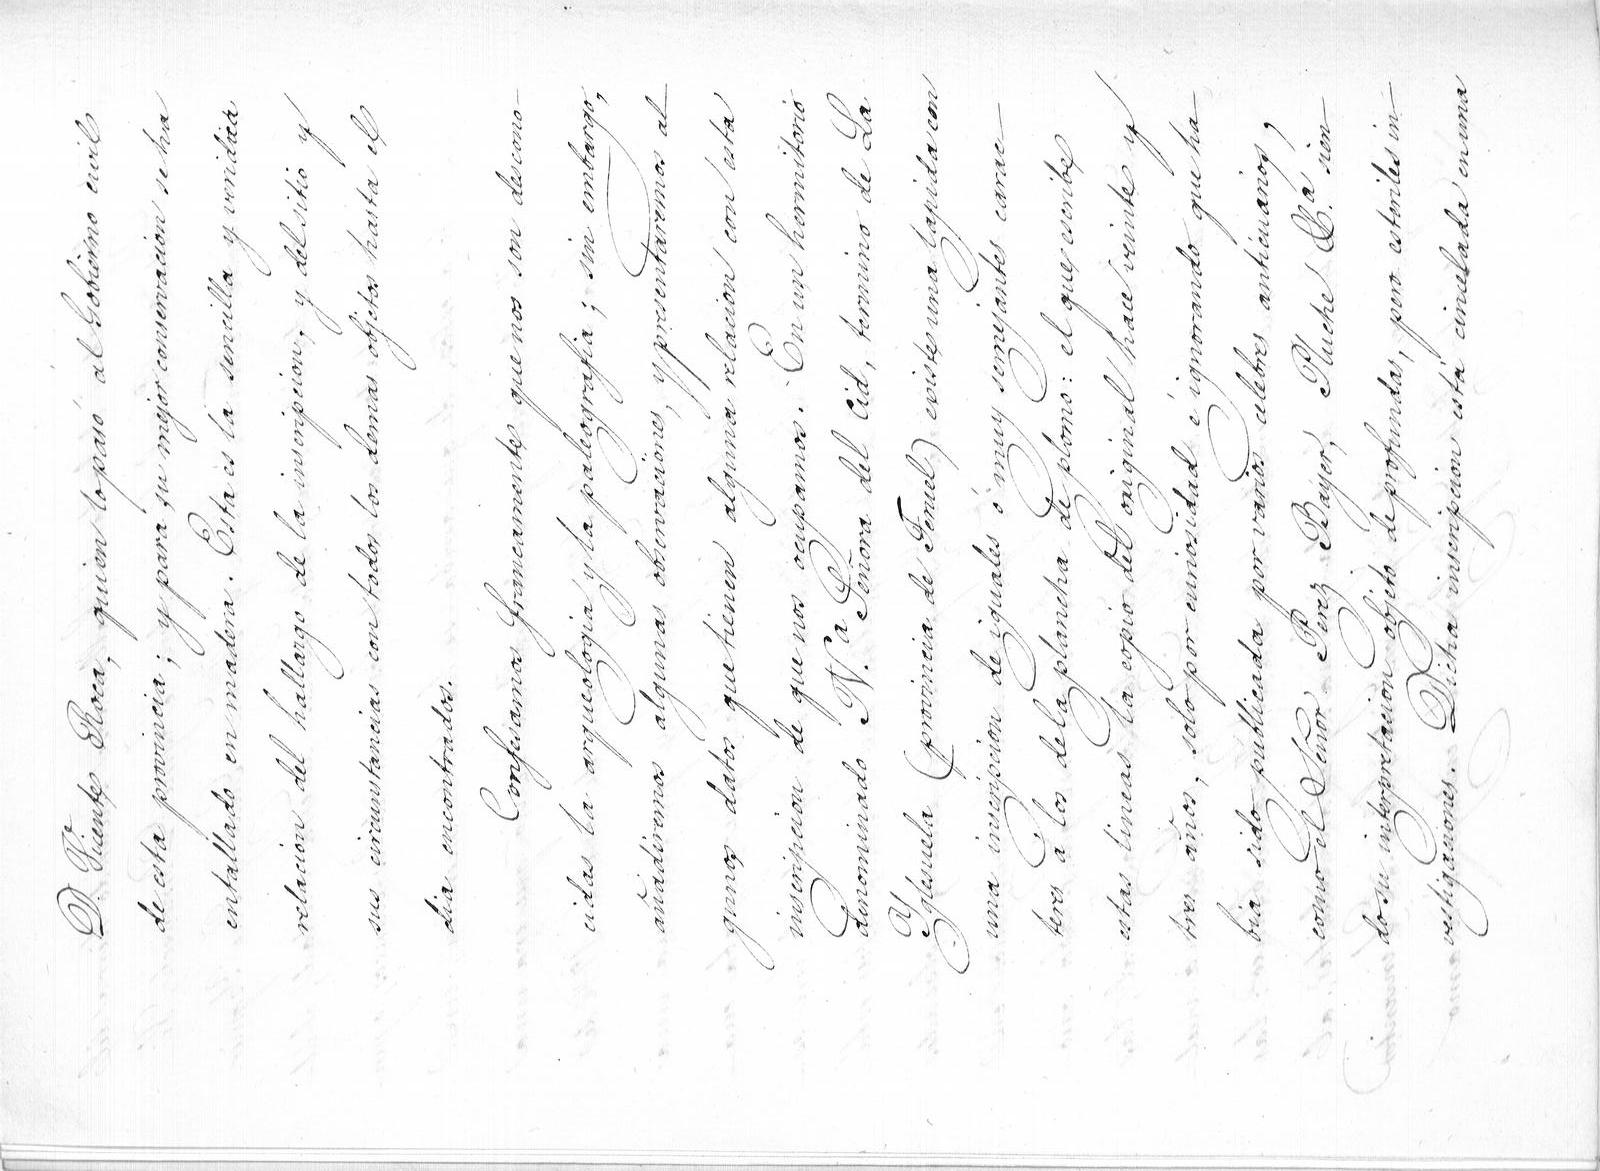 D. Vicente Roca, quien lo pasó al Gobierno civil
de esta provincia; y para su mejor conservacion se ha
entallado en madera. Esta es la sencilla y veridica
relacion del hallazgo de la inscripcion, y del sitio y
sus circunstancias con todos los demas objetos hasta el
dia encontrados.
Confesamos francamente que nos son descono-
cidas la arqueologia y la paleografia; sin embargo,
añadiremos algunas observaciones, y presentaremos al-
gunos datos que tienen alguna relacion con esta
inscripcion de que nos ocupamos. En un hermitorio
denominado N.ª Señora del Cid, termino de La
Yglesuela (provincia de Teruel) existe una lapida con
una inscripcion de iguales ó muy semejantes carac-
teres a los de la plancha de plomo: el que escribe
estas lineas la copió del original hace veinte y
tres años, solo por curiosidad é ignorando que ha-
bia sido publicada por varios celebres anticuarios,
como el Señor Perez Bayer, Pluche &.ª sien-
do su interpretacion objeto de profundas, pero esteriles in-
vestigaciones. Dicha inscripcion está cincelada en una